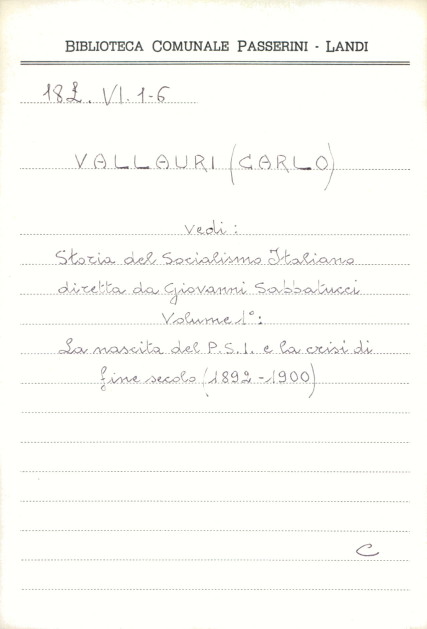 BIBLIOTECA COMUNALE PASSERINI - LANDI
182. VI. 1-6
VALLAURI (CARLO)
vedi:
Storia del Socialismo Italiano
diretta da Giovanni Sabbatucci
Volume 1°:
La nascita del P.S.I. e la crisi di
fine secolo (1892-1900)
C